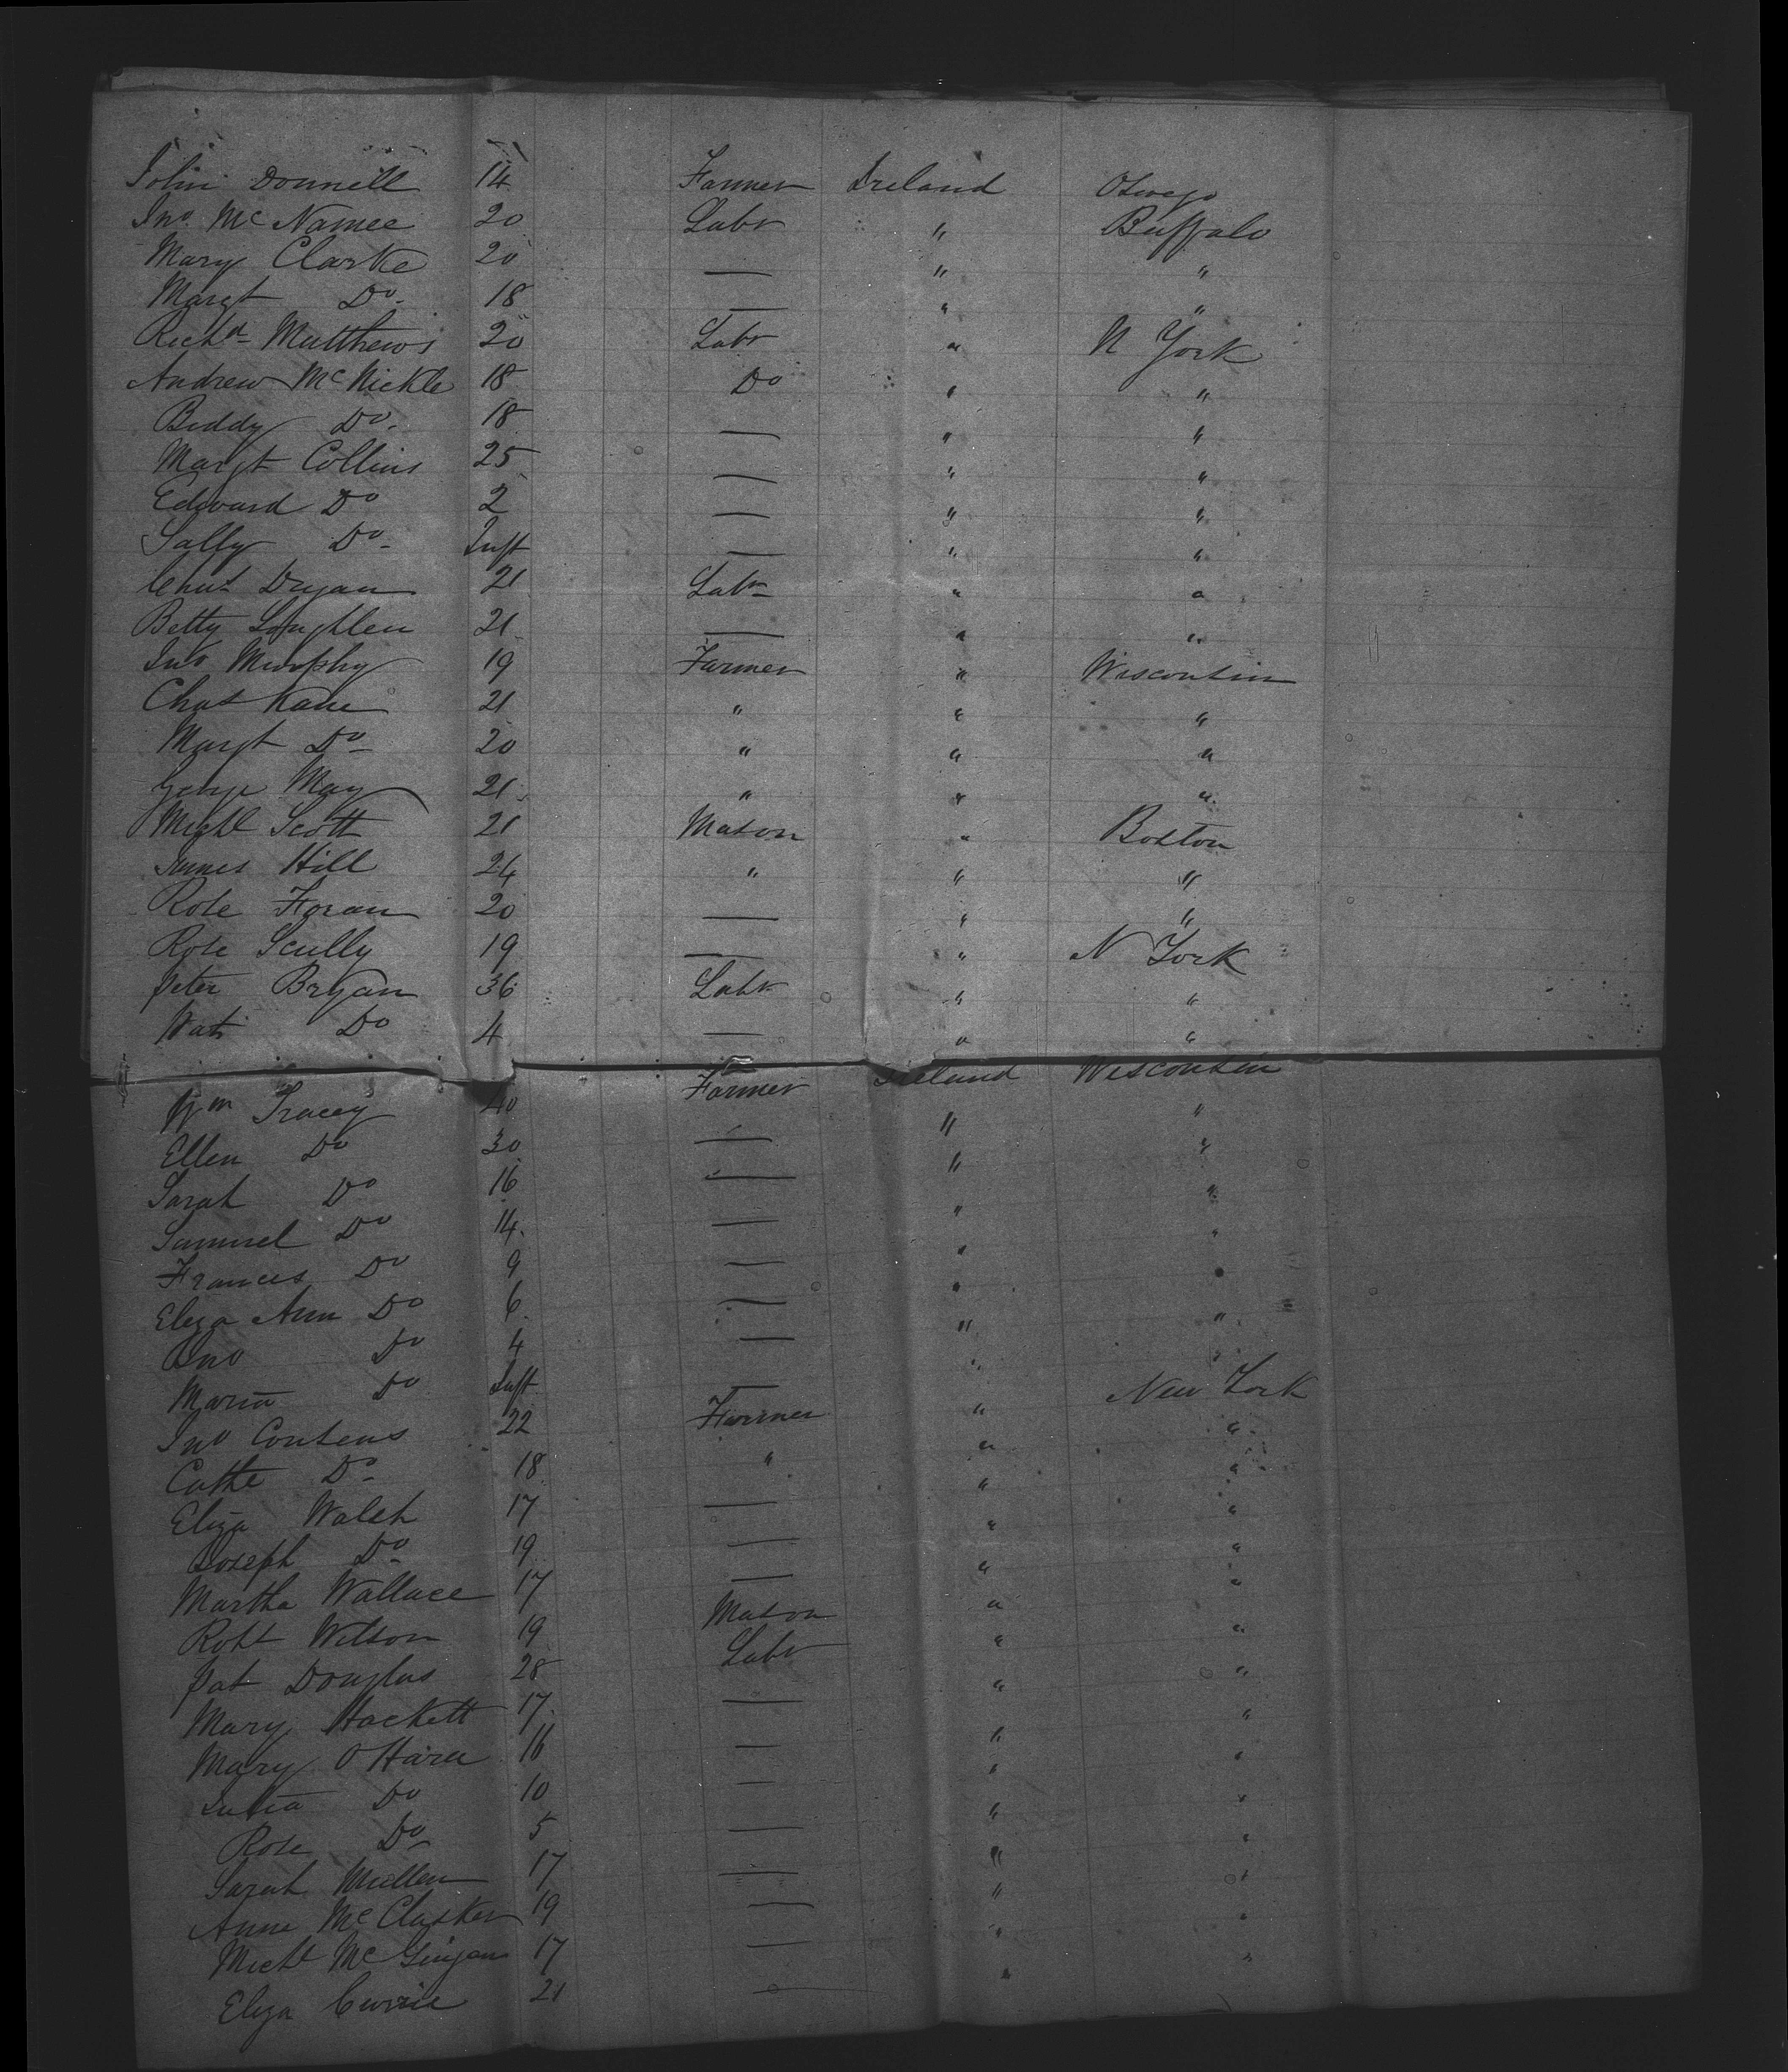 John Donnell 14 Farmer Ireland Oswego
Jno. Mc Namee 20 Labr " Buffalo
Mary Clarke 20 — " "
Margt Do- 18 — " "
Richd- Matthews 20 Labr " N York
Andrew Mc Nickle 18 Do " "
Biddy Do- 18 — " "
Margt Collins 25 — " "
Edward Do 2 — " "
Sally Do- Inft — " "
Dryan 21 Labr " "
Betty Loughlen 21 — " "
Jno Murphy 19 Farmer " Wisconsin
Chas Kane 21 " " "
Margt Do- 20 " " "
George May 21 " " "
Michl Scott 21 Mason " Boston
James Hill 24 " " "
Rose Foran 20 — " "
Rose Scully 19 — " N York
Peter Bryan 36 Labr " "
Do 4 — " "
Wm Tracey 40 Farmer Ireland Wisconsin
Ellen Do 30 — " "
Sarah Do 16 — " "
Samuel Do 14 — " "
Frances Do 9 — " "
Eliza Ann Do 6 — " "
Jno Do 4 — " "
Maria Do Inft — " "
Jno Contens 22 Farmer " New York
Cathe Do- 18 " " "
Eliza Walsh 17 — " "
Joseph Do- 19 — " "
Martha Wallace 17 — " "
Robt Wilson 19 Mason " "
Pat Douglas 28 Labr " "
Mary Hackett 17 — " "
Mary O Hara 16 — " "
Do 10 — " "
Rose Do- 5 — " "
Sarah Mullen 17 — " "
Anne Mc Clusker 19 — " "
Michl Mc Guigan 17 — " "
Eliza Currie 21 — " "